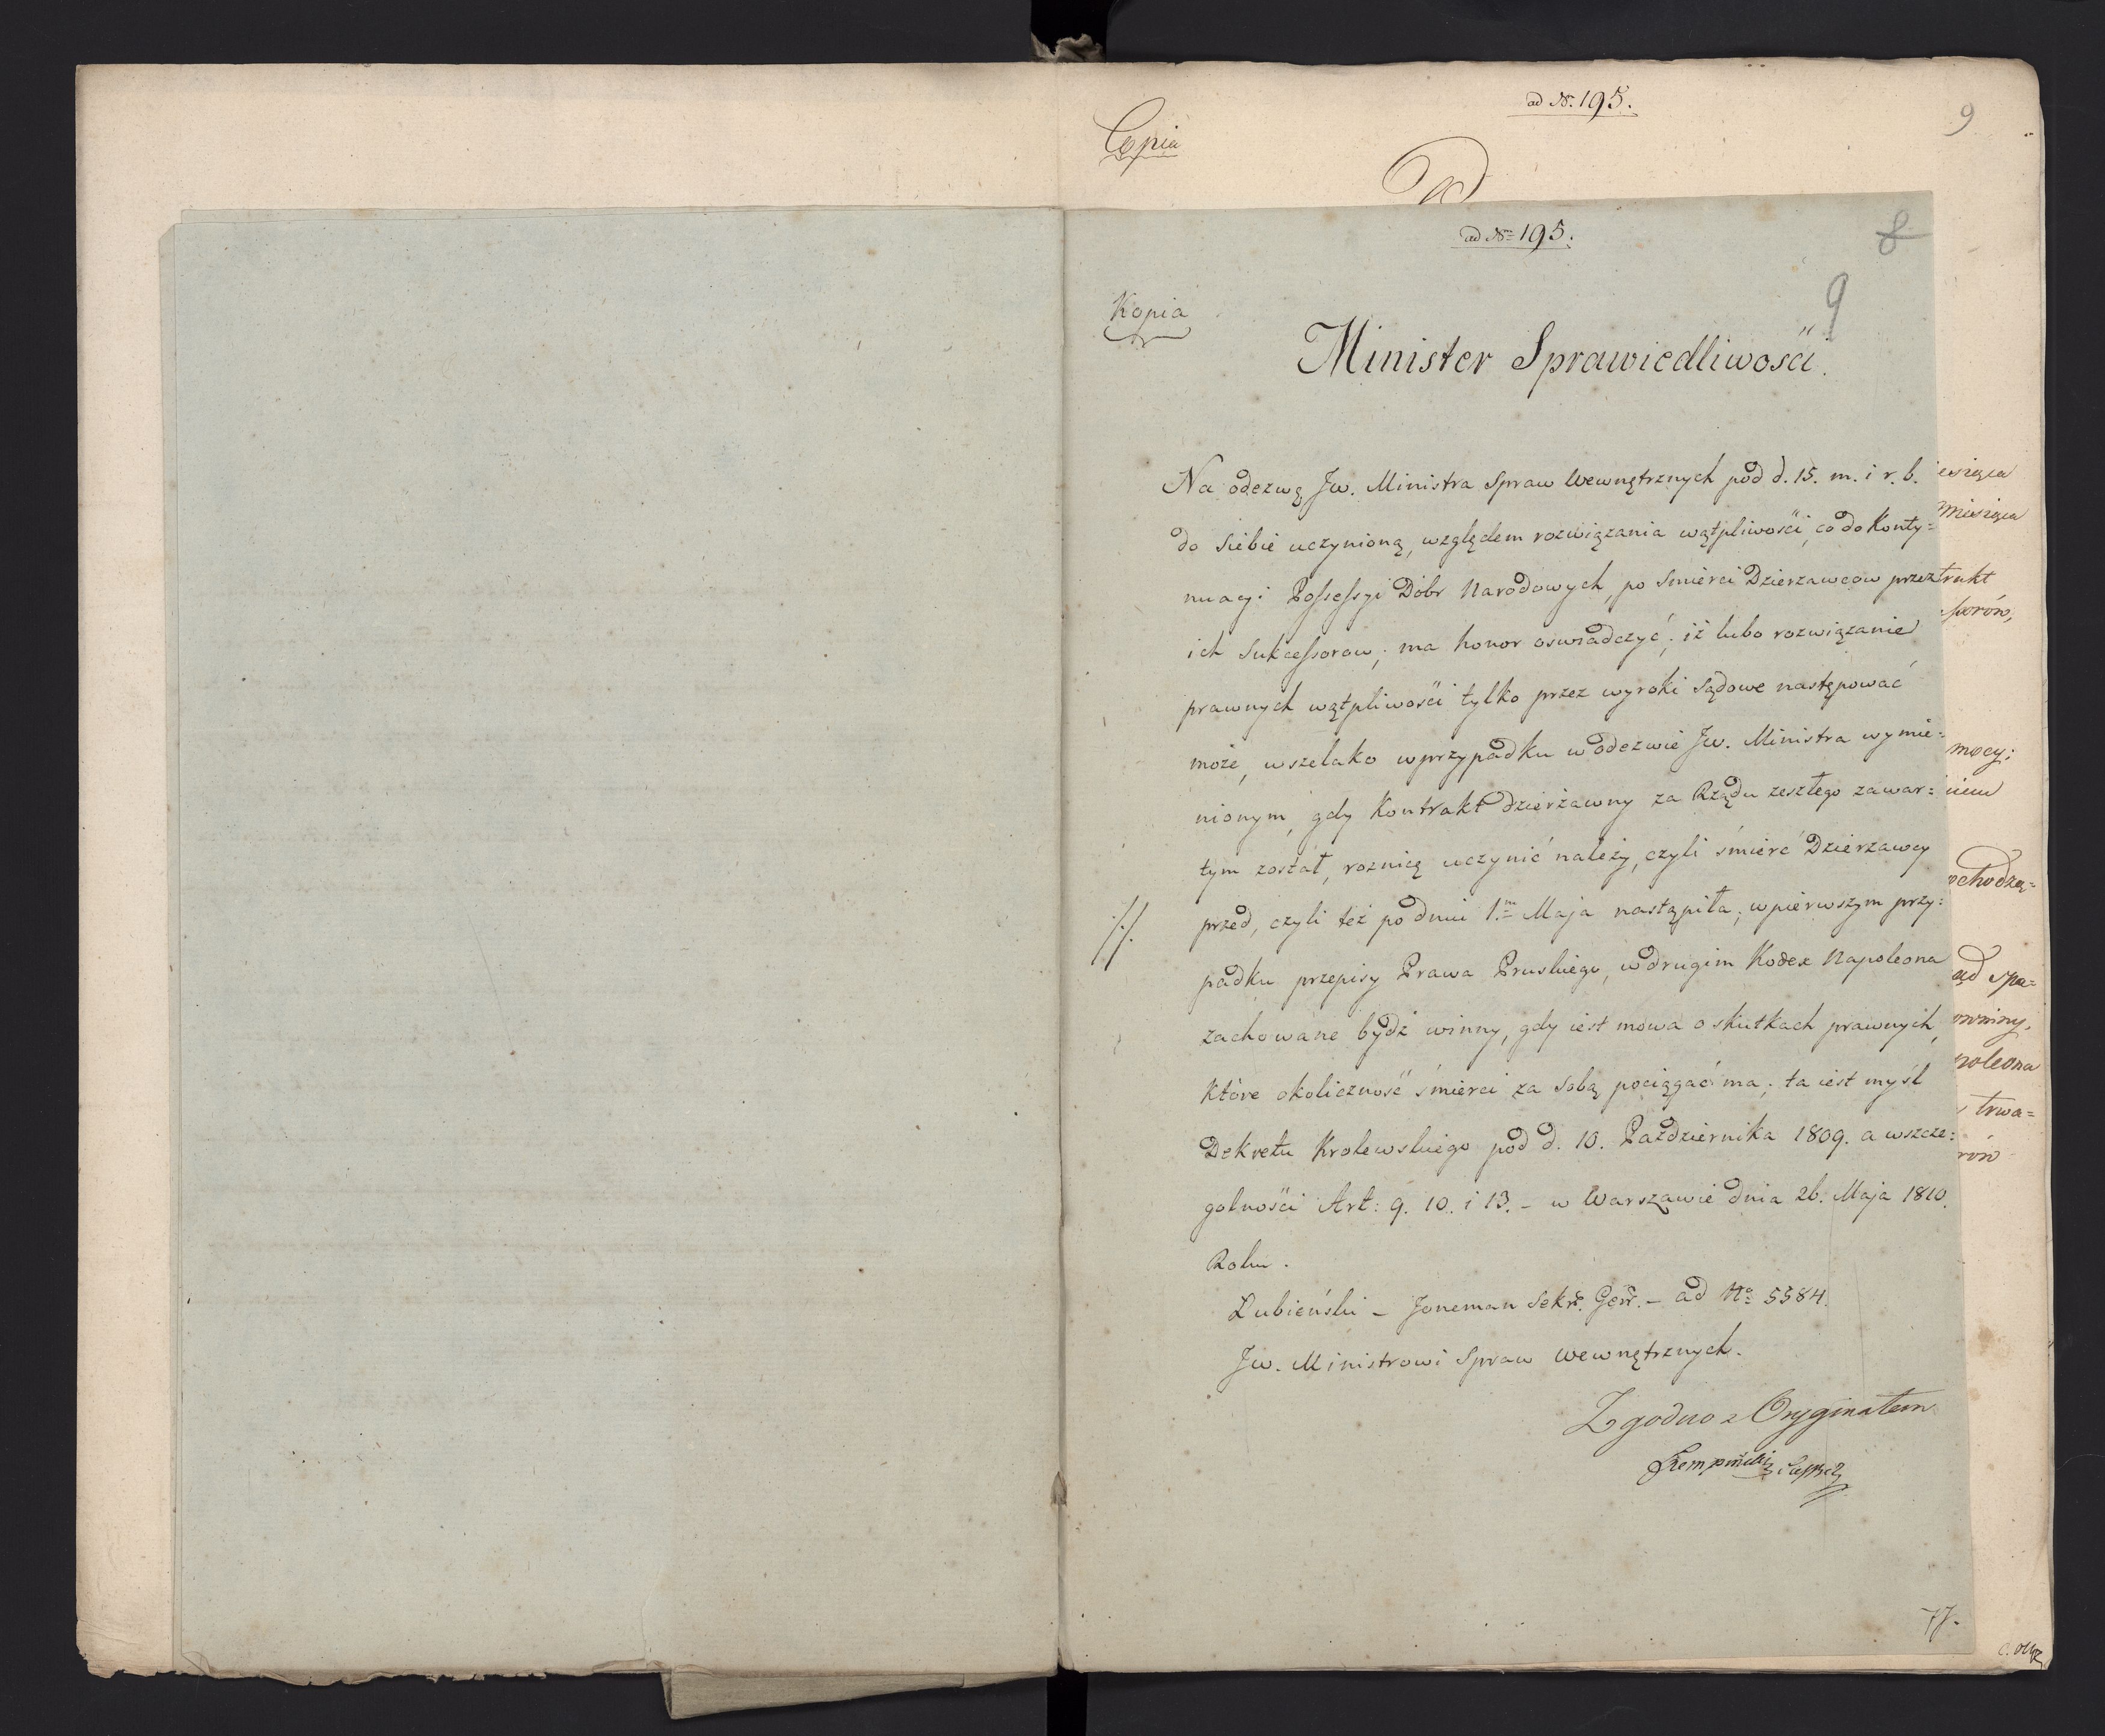 ad N. 195.
9
Copia
ad Nm 195.
8
9
Kopia
Minister Sprawiedliwości.
Na odezwę Jw. Ministra Spraw Wewnętrznych pod d. 15. m. i r. b.
do siebie uczynioną, względem rozwiązania wątpliwości, co do Konty=
nuacyi Possessyi Dóbr Narodowych, po smierci Dzierzawcow przez
ich Sukcessorow; ma honor oswiadczyć; iż lubo rozwiązanie
prawnych wątpliwości tylko przez wyroki sądowe następować
może, wszelako w przypadku w odezwie Jw. Ministra wymie=
nionym, gdy Kontrakt dzierżawny za Rządu zeszłego zawar=
tym został, roznicę uczynić należy, czyli śmierć Dzierzawcy
przed, czyli też po dniu 1m Maja nastąpiła; w pierwszym przy=
padku przepisy Prawa Pruskiego, w drugim Kodex Napoleona
zachowane bydź winny, gdy iest mowa o skutkach prawnych,
które okoliczność śmierci za sobą pociągać ma; ta iest myśl
Dekretu Krolewskiego pod d. 10. Października 1809. a wszcze=
golności Art: 9. 10. i 13. – w Warszawie dnia 26. Maja 1810.
Roku.
Lubieński – Joneman Sekr. Gen. – ad No 5384.
Jw. Ministrowi Spraw Wewnętrznych.
Zgodno z Oryginałem
77.
esiąca
Miesiąca
trakt
ssorów,
mocy;
niem
ochodzą=
ąd spa=
winny,
poleona
trwa=
rów